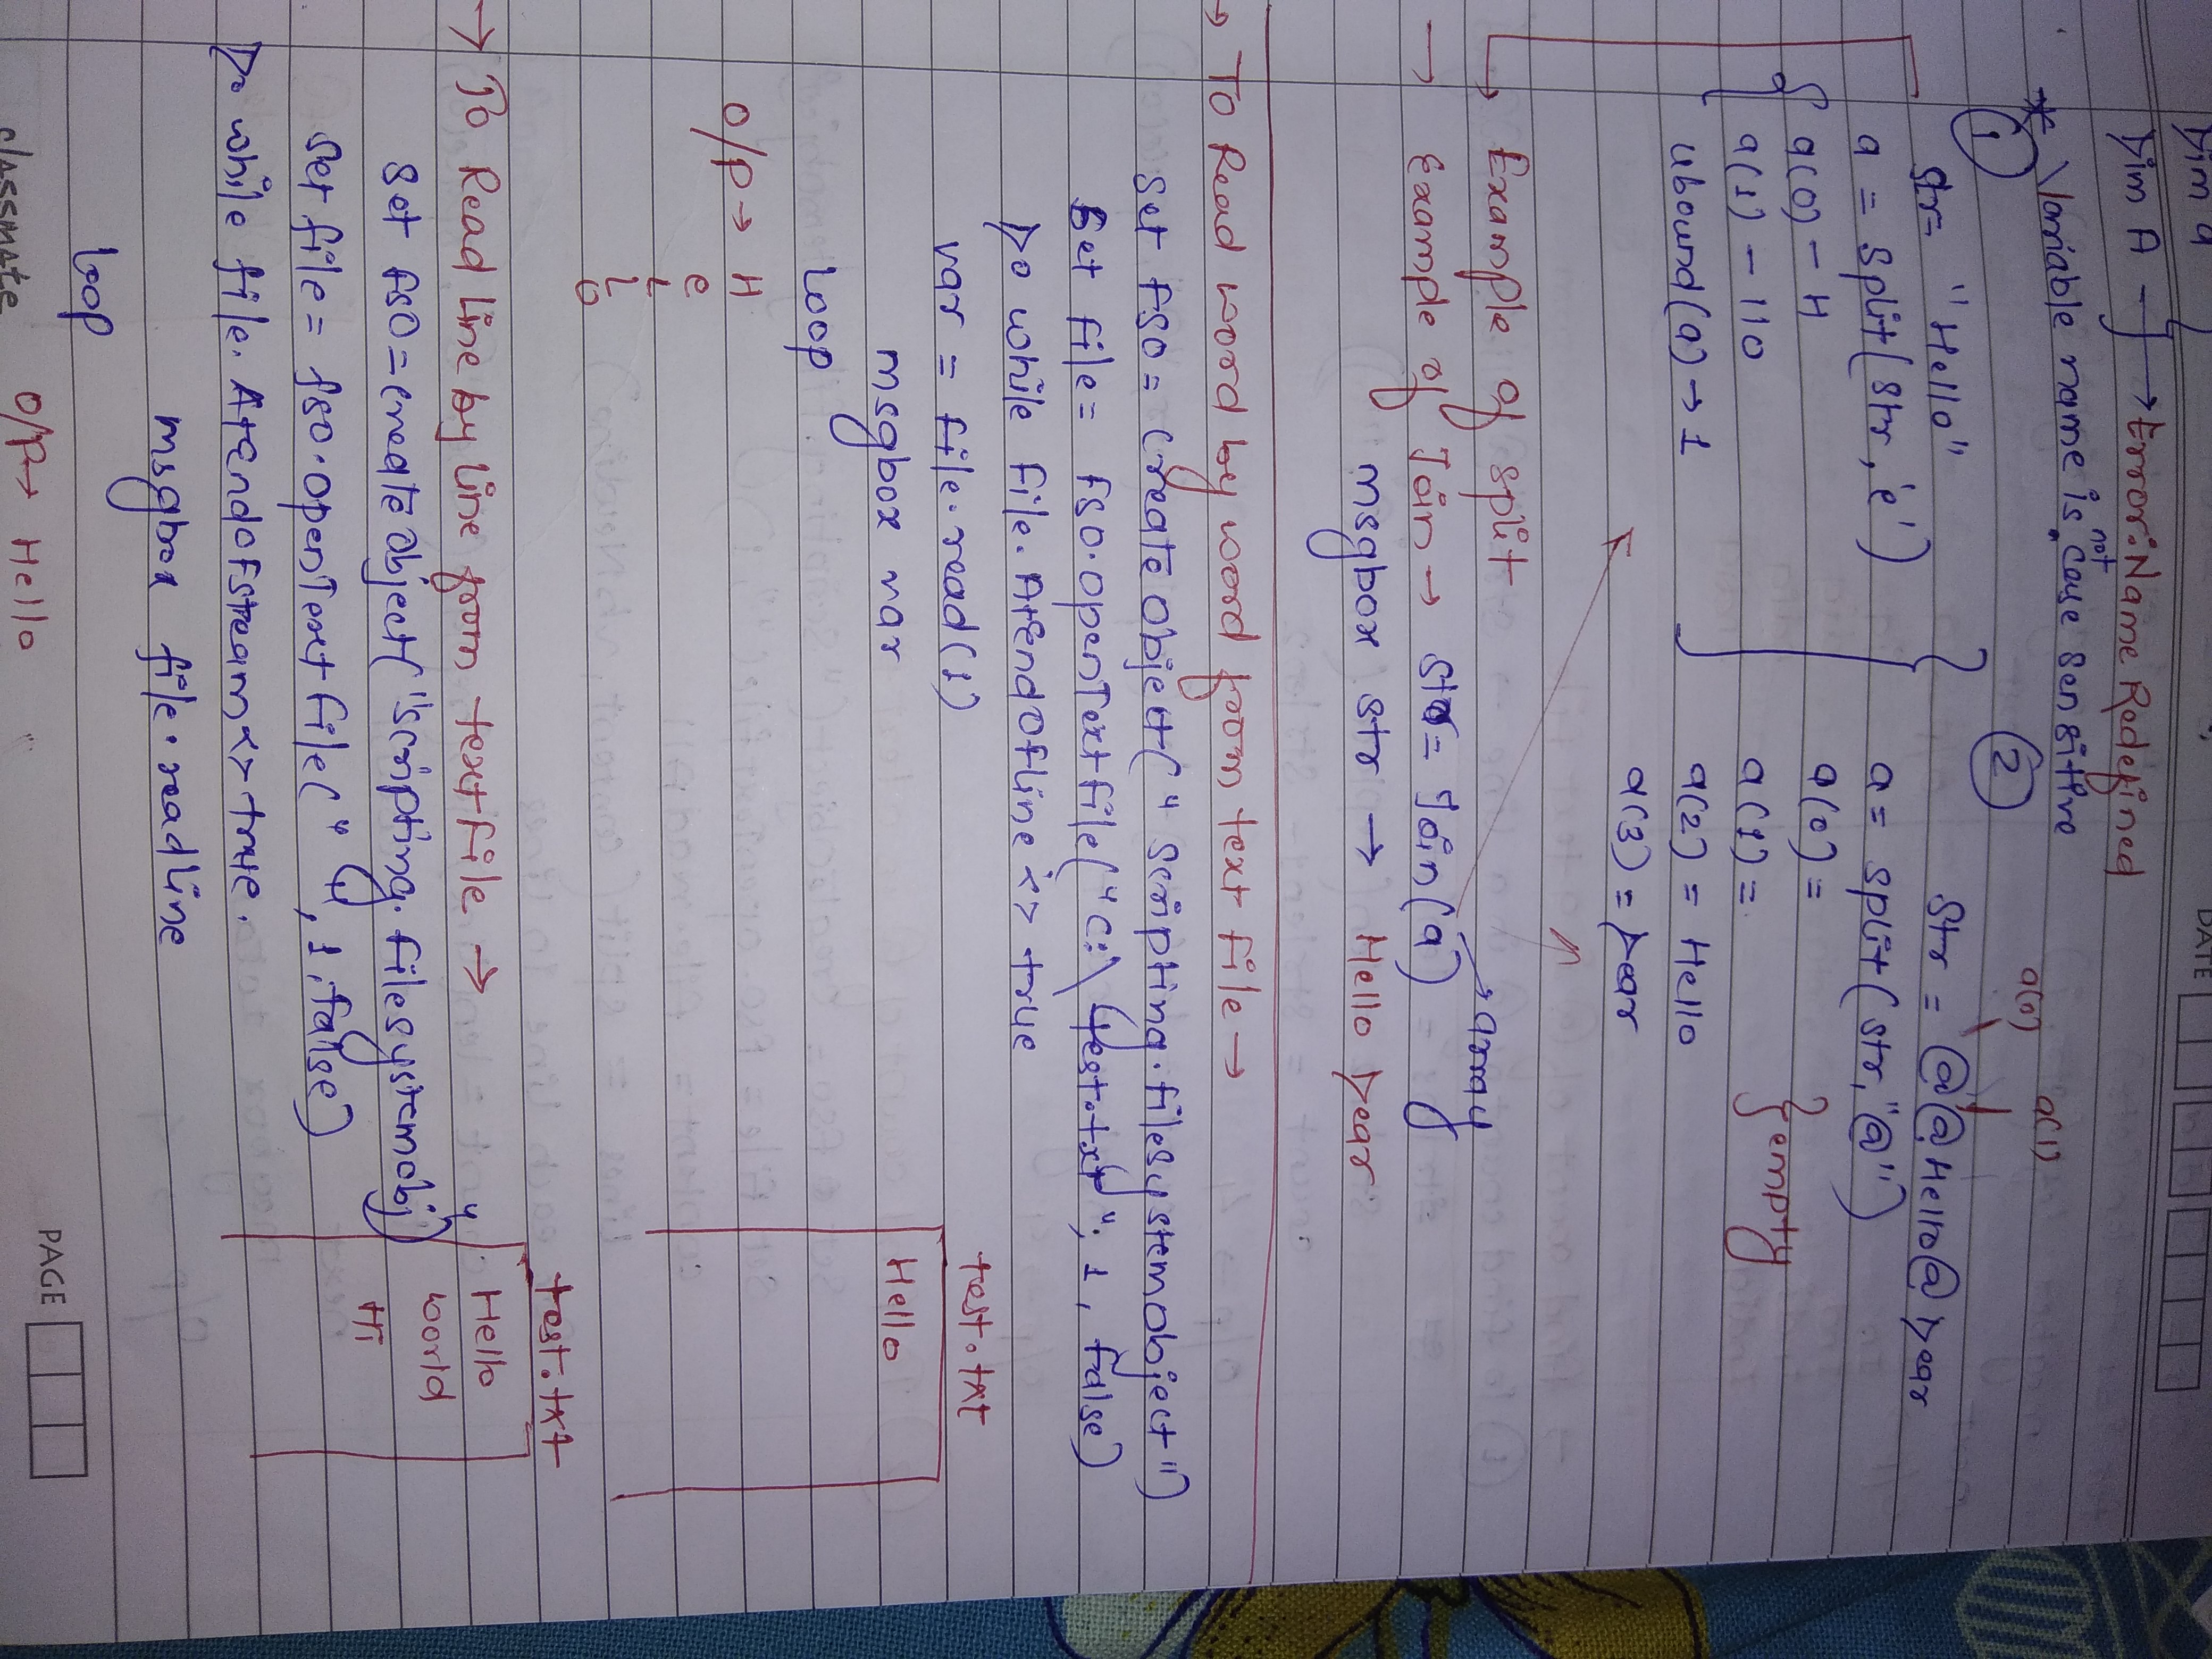 Dim a
DATE
Dim A → Error: Name Redefined
* Variable name is not case sensitive
①
str = "Hello"
a = split(str, 'e')
a(0) - H
a(1) - llo
ubound(a) → 1
②
a(0) a(1)
str = @@Hello@Dear
a = split(str, "@")
a(0) =
a(1) =
} empty
a(2) = Hello
a(3) = Dear
→ Example of split
→ Example of Join → str = Join(a) → array
msgbox str → Hello Dear
→ To Read word by word from text file →
set fso = createobject("scripting.filesystemobject")
set file = fso.openTextfile("c:\test.txt", 1, false)
Do while file.AtEndOfline <> true
var = file.read(1)
msgbox var
loop
test.txt
Hello
O/P → H
e
L
L
o
→ To Read Line by Line from text file →
set fso = createobject("scripting.filesystemobj")
set file = fso.openTextfile(" ", 1, false)
Do while file.AtEndOfstream <> true.
msgbox file.readline
loop
test.txt
Hello
world
Hi
O/P → Hello
classmate
PAGE